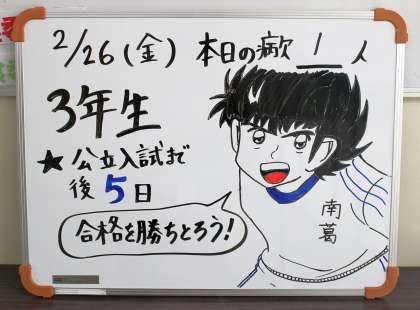 2/26(金) 本日の病欠 1人
3年生
★公立入試まで
後5日
合格を勝ちとろう!
南葛